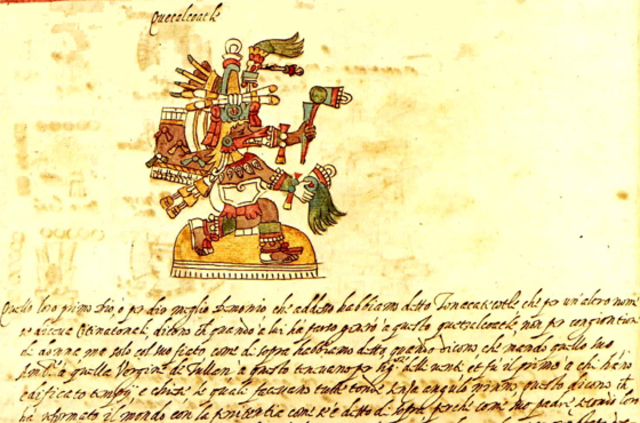 Quetzalcoatle
Questo loro primo Dio, o per dio meglio demonio, che adesso habbiamo detto Tonacatecotle, che per un'altro nome
se diceua Citinatonali, dicono ch quando a lui ha parso genero a questo quetzalcoatle, non per congiontione
di donna ma solo col suo fiato come di sopra habbiamo detto quando dicono, che mando quello suo
Amb.ᵃ a quella Vergine di Tullan. a questo teneuano per del et fu il primo a chi hano
edificato tempij e chiese le quali faceuano tutte tonde senza angulo niuno questo dicono ch
ha reformato il mondo con la penitentia come s'è ditto di sopra, perche come suo padre